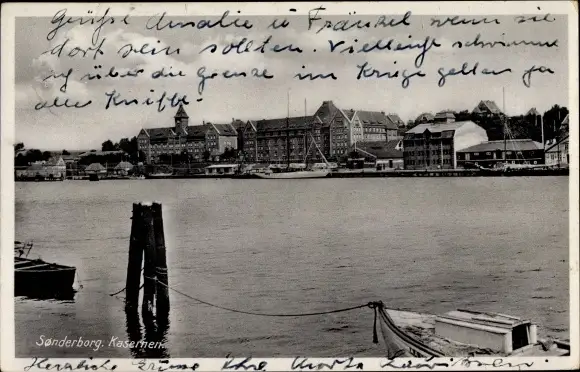 Grüße Amalie u Fränkel, wenn sie
dort sein sollten. Vielleicht schwimm
ich über die Grenze im Kriege gelten ja
alle Kniffe.
Sønderborg. Kasernen.
Herzliche Grüße Ihre Marta